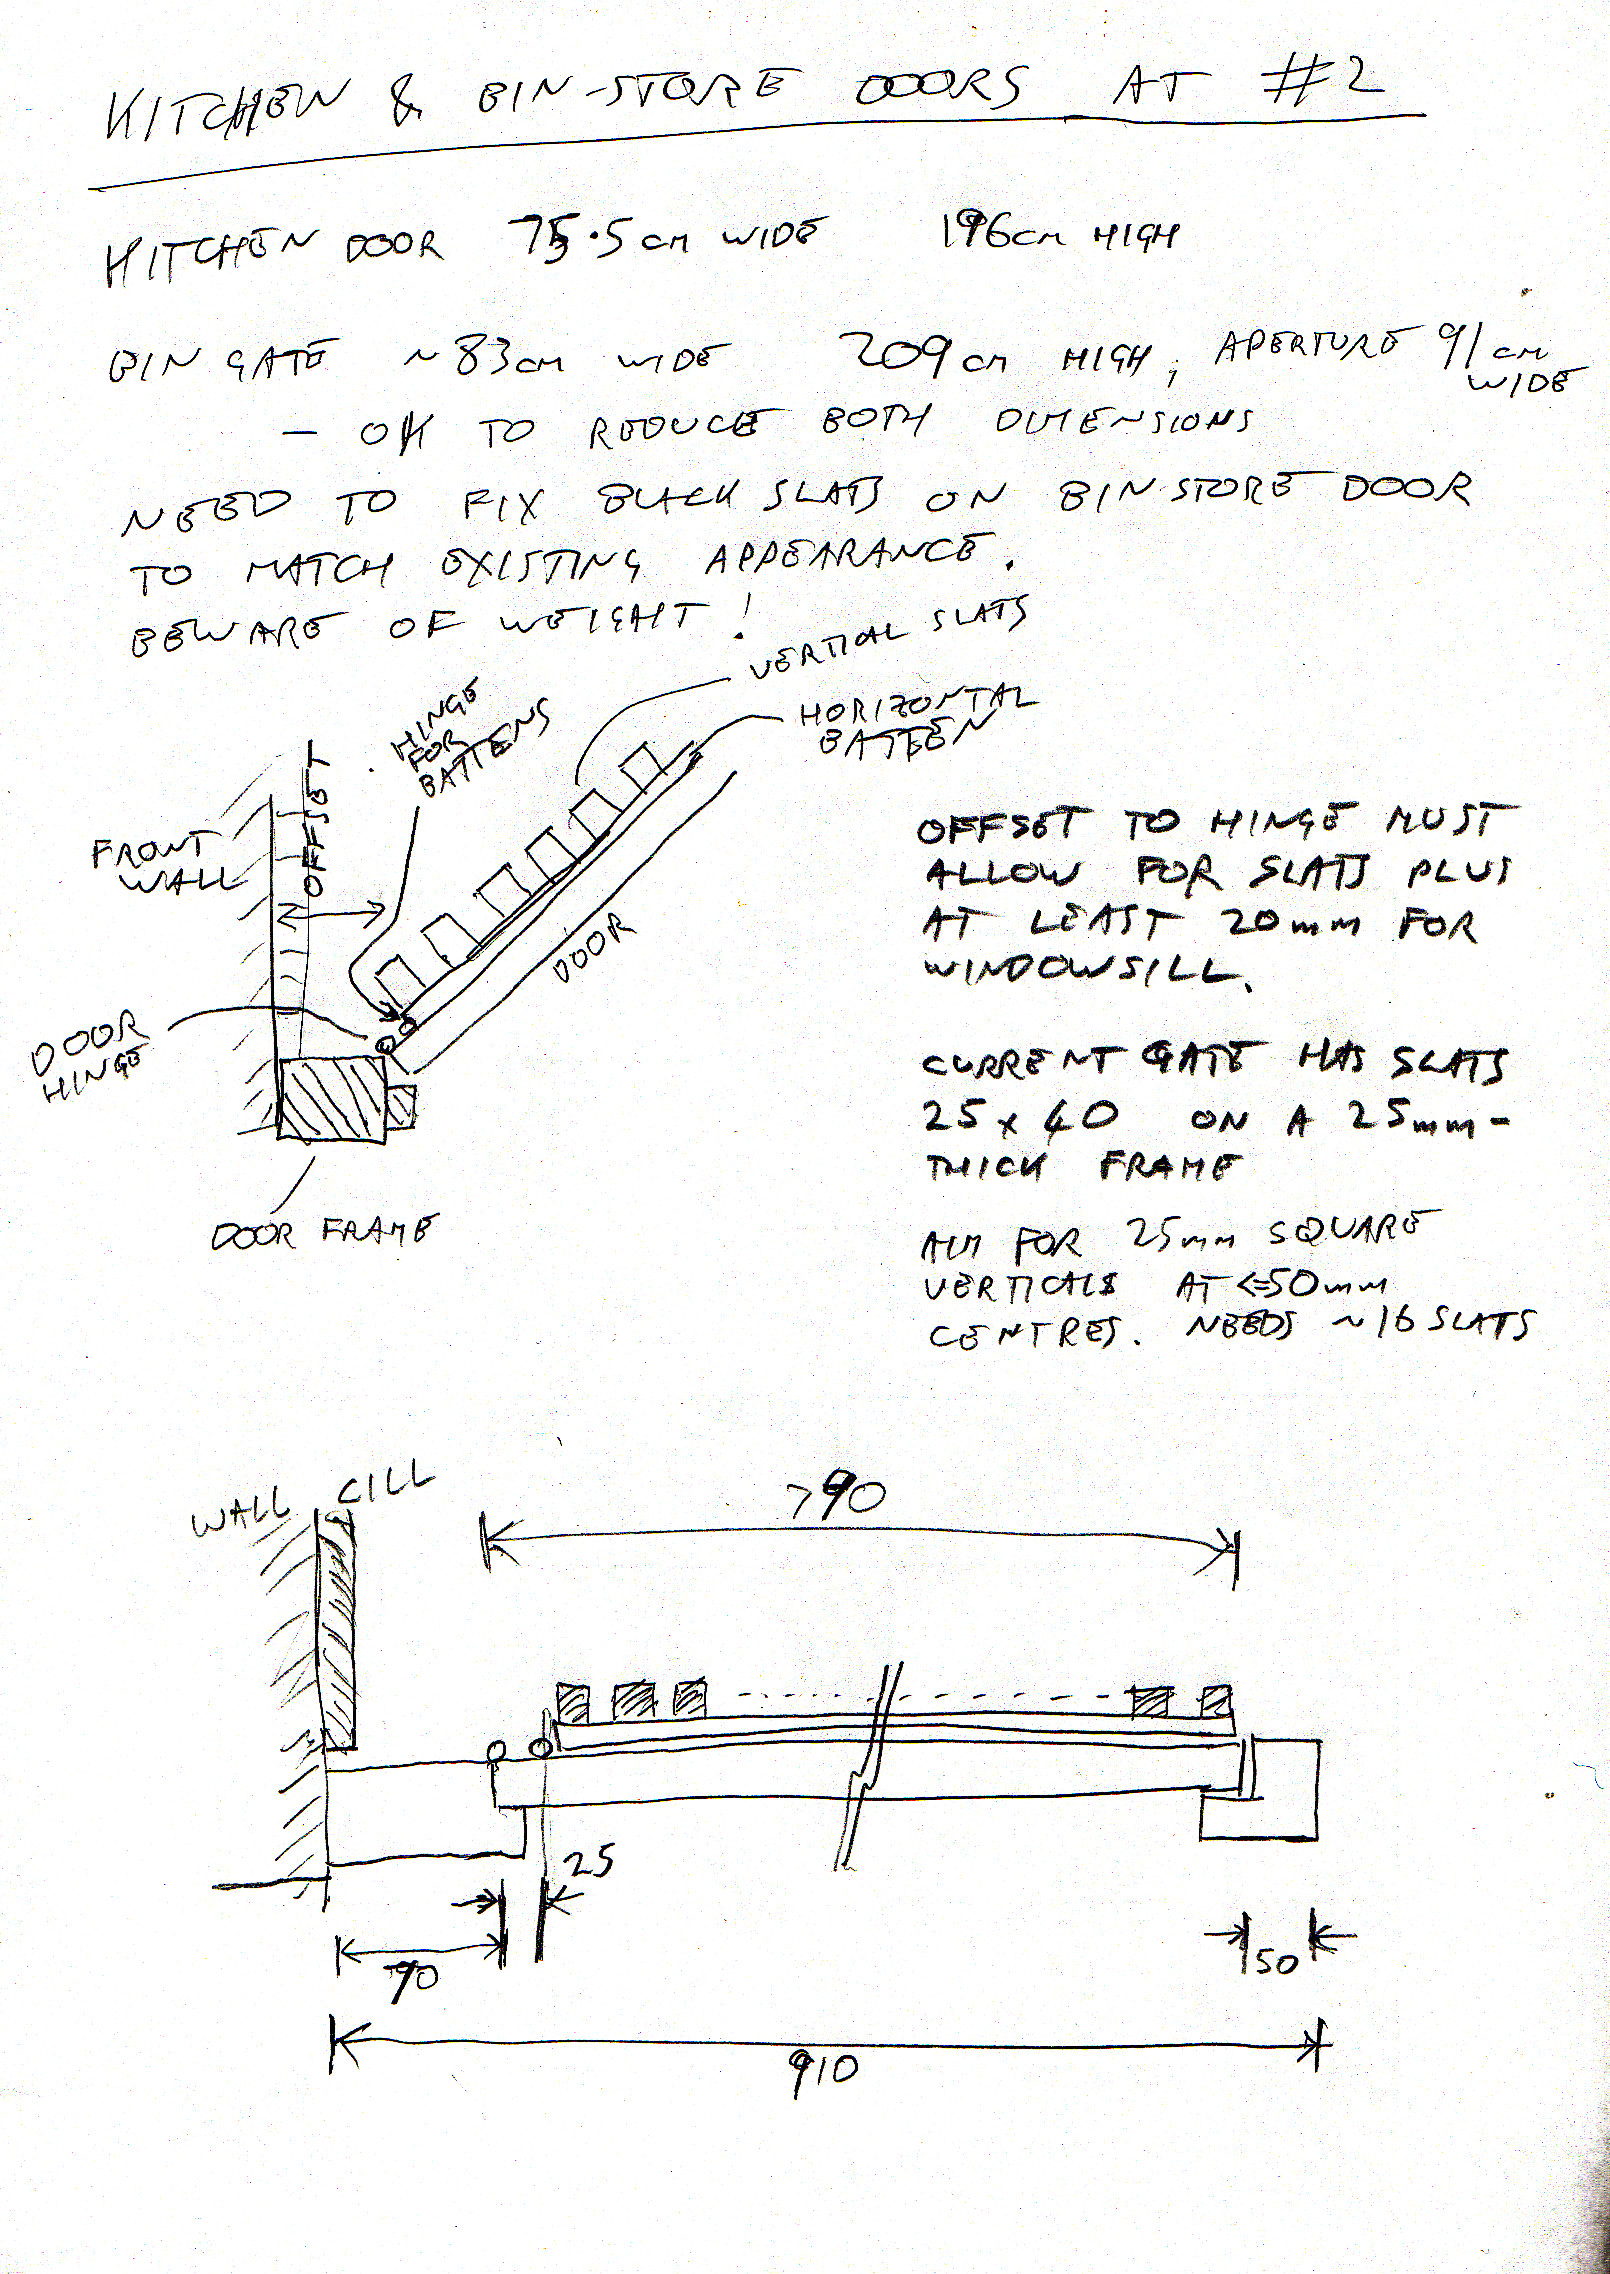 KITCHEN & BIN-STORE DOORS AT #2
KITCHEN DOOR 75.5cm WIDE 196cm HIGH
BIN GATE ~83cm WIDE 209cm HIGH; APERTURE 91cm WIDE
- OK TO REDUCE BOTH DIMENSIONS
NEED TO FIX BLACK SLATS ON BIN-STORE DOOR
TO MATCH EXISTING APPEARANCE.
BEWARE OF WEIGHT!
VERTICAL SLATS
HORIZONTAL
BATTEN
HINGE
FOR
BATTENS
OFFSET
FRONT
WALL
DOOR
DOOR
HINGE
DOOR FRAME
OFFSET TO HINGE MUST
ALLOW FOR SLATS PLUS
AT LEAST 20mm FOR
WINDOWSILL.
CURRENT GATE HAS SLATS
25 x 40 ON A 25mm-
THICK FRAME
AIM FOR 25mm SQUARE
VERTICALS AT <=50mm
CENTRES. NEEDS ~16 SLATS
WALL CILL
790
25
90
50
910